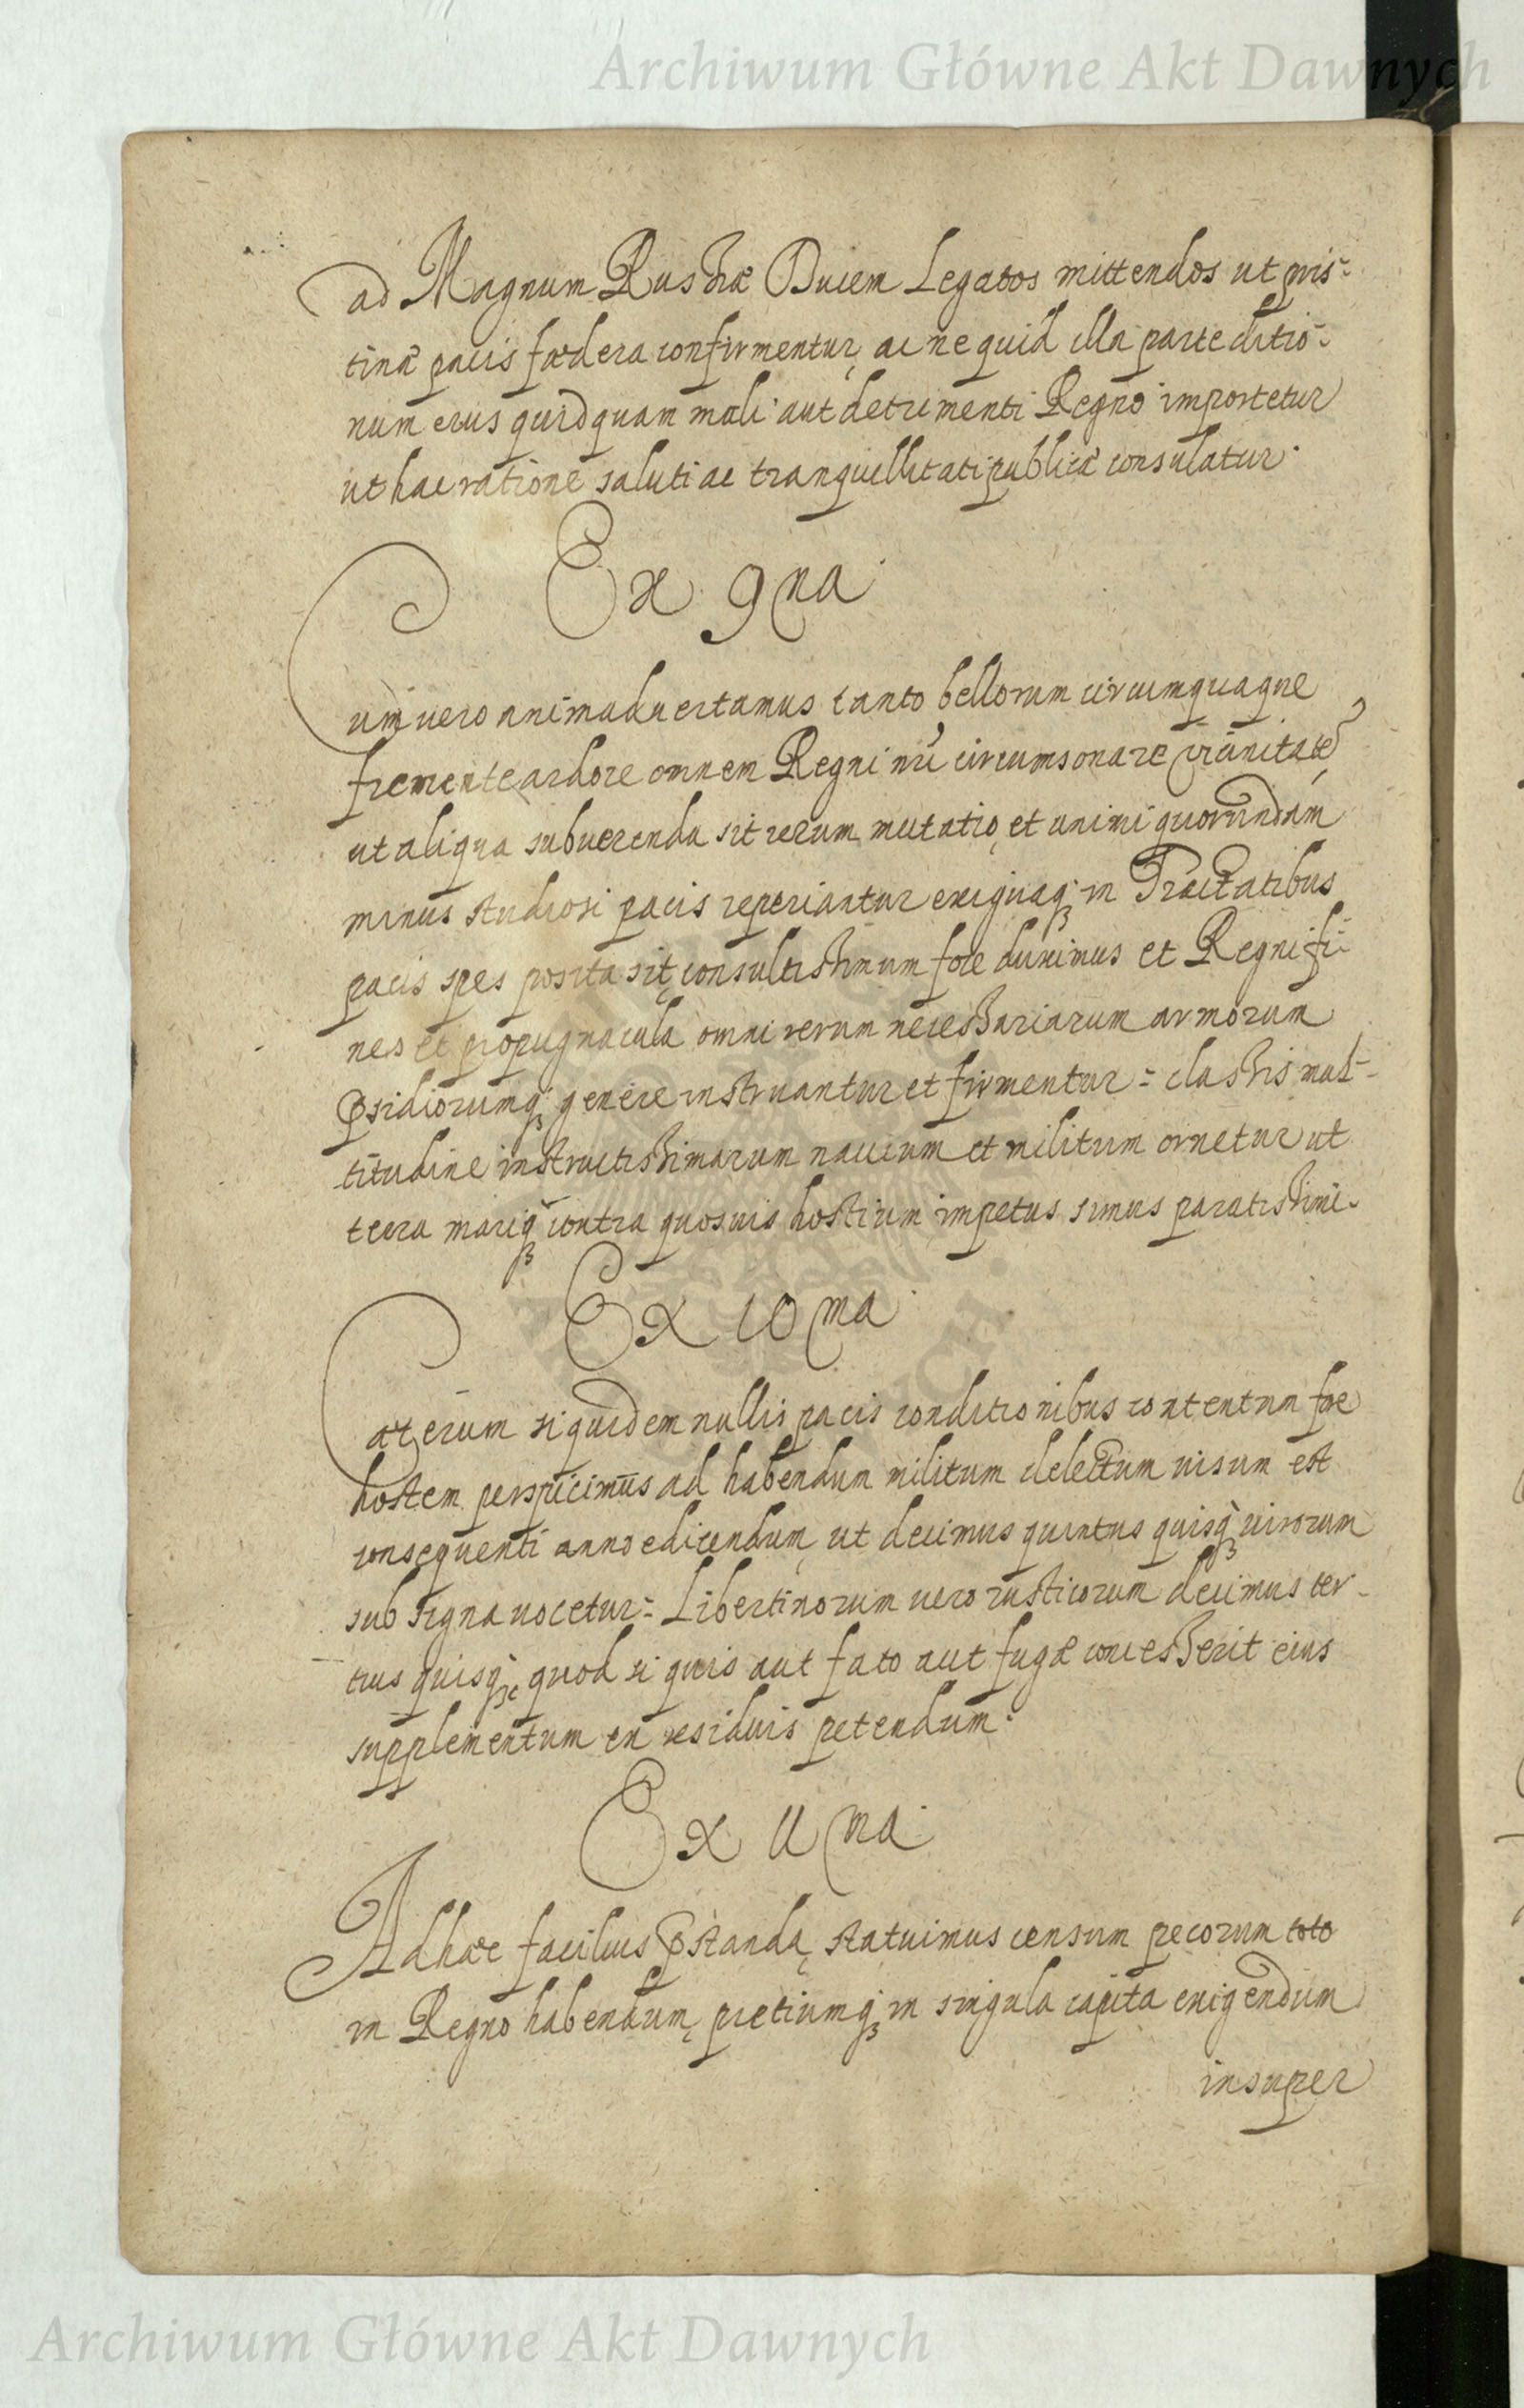 Archiwum Główne Akt Dawnych
ad Magnum Russiæ Ducem Legatos mittendos ut pris-
tinæ pacis fœdera confirmentur, ac ne quid illa parte ditio-
num eius quidquam mali aut detrimenti Regno importetur
ut hac ratione saluti ac tranquillitati publicæ consulatur.
Ex 9na
Cum vero animaduertamus tanto bellorum circumquaque
fremente ardore omnem Regni nri circumsonare vicinitatē
ut aliqua subuerenda sit rerum mutatio, et animi quorundam
minus studiosi pacis reperiantur exiguaqȝ in Tractatibus
pacis spes posita sit, consultissimum fore duximus et Regni fi-
nes et propugnacula omni rerum necessariarum armorum
psidiorumqȝ genere instruantur et firmentur: classis mul-
titudine instructissimarum nauium et militum ornetur ut
terra mariqȝ contra quosuis hostium impetus simus paratissimi.
Ex 10ma
Cæterum siquidem nullis pacis conditionibus contentum fore
hostem perspicimus ad habendum militum delectum uisum est
consequenti anno edicendum, ut decimus quintus quisqȝ uirorum
sub signa uocetur: Libertinorum uero rusticorum decimus ter-
tius quisqȝ, quod si quis aut fato aut fugæ concesserit eius
supplementum ex residuis petendum.
Ex 11ma
Ad hæc facilius pstanda, statuimus censum pecorum toto
in Regno habendum, pretiumqȝ in singula capita exigendum
insuper
Archiwum Główne Akt Dawnych